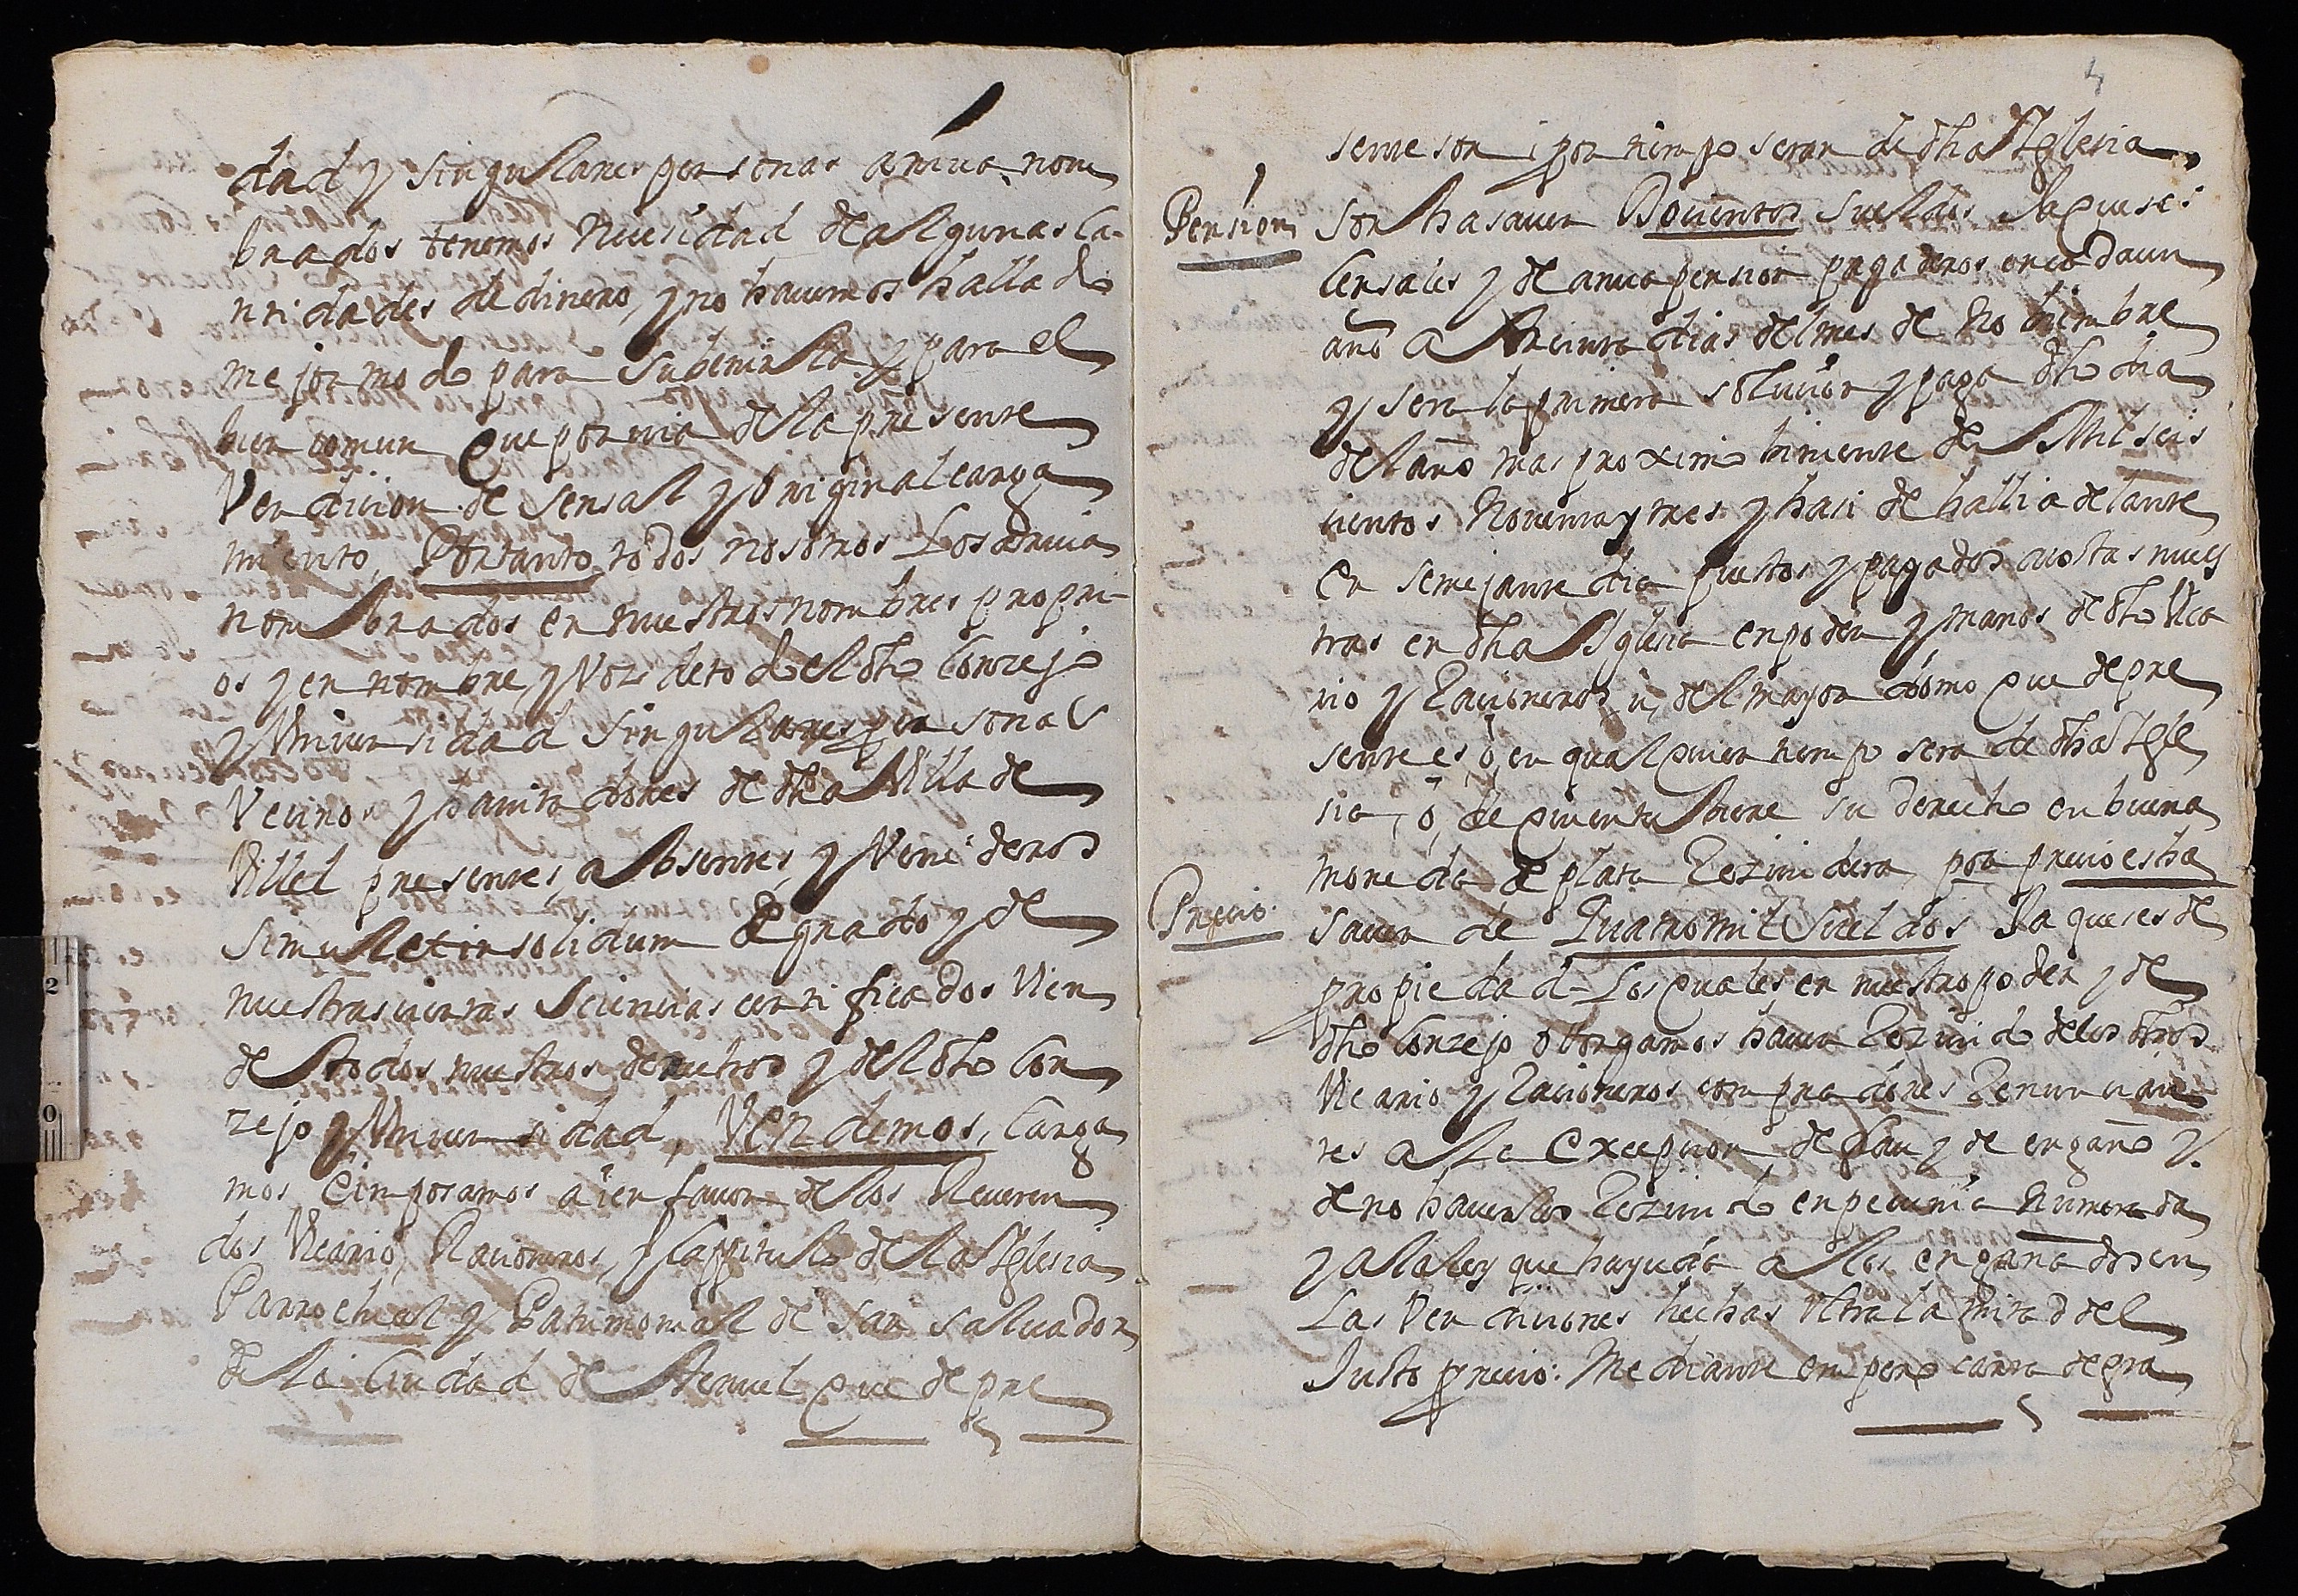 dad y singulares personas arriva nom
brados tenemos necesidad de algunas ca-
ntidades de dinero, y no havemos hallado
mejor modo para subenirla y para el
bien comun que por via de la presente
Vendicion de sensal y original carga
miento, Portanto todos nosotros Los arriva
nombrados en nuestros nombres propri-
os y en nombre, y Voz de todo el dho Conzejo
y Universidad singulares personas
Vecinos y havitadores de dha Villa de
Villel presentes, absentes, y Venideros
simul et insolidum de grado y de
nuestras ciertas sciencias certificados bien
de todos nuestros derechos y del dho Con
zejo y Universidad, Vendemos, carga
mos e imposamos a i en favor de los Reveren
dos Vicario, Racioneros, y Cappitulo de la Iglesia
Parrochial y Patrimonial de San Salvador
de la Ciudad de Teruel que de pre
4
sente son i por tiempo seran de dha Iglesia
Pension
son ha saver Docientos sueldos Jaqueses
Censales y de anua pension pagaderos en cada un
año a Treinta dias del mes de Nobiembre
y sera la primera solucion y paga dho dia
del año mas proximo biniente de Mil seis
cientos Noventa y tres y hasi de halli adelante
en semejante dia puestos y pagados acostas nues
tras en dha Iglesia en poder y manos de dho Vica
rio y Racioneros, u, del mayordomo que de pre
sente es, ó, en qualquier tiempo sera de dha Igle
sia, ó, de quien tubiere su derecho en buena
moneda de plata Rezividera, por precio es ha
Precio.
saver de Quatro mil Sueldos Jaqueses de
propiedad- Los quales en nuestro poder y de
dho Conzejo otorgamos haver Rezivido de los dhos
Vicario y Racioneros compradores Renuncian
tes a la excepcion de frau y de engaño y
de no haverlos Rezivido en pecunia numerada
y a la ley que hayuda a los engañados en
Las Vendiciones hechas Ultra la mitad del
Justo precio: Mediante empero carta de gra